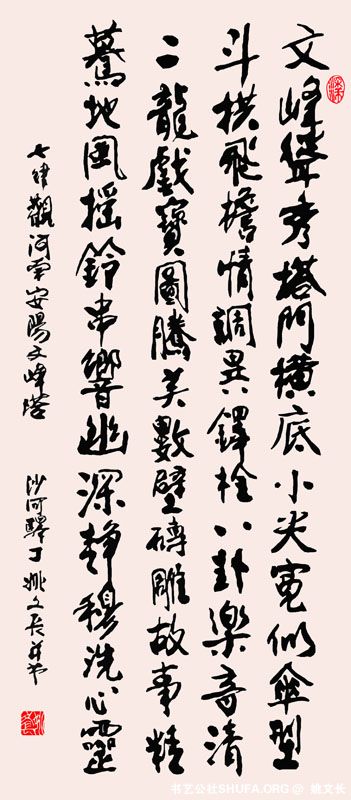 文峰聳秀塔門橫底小尖寬似傘型
斗拱飛檐情調異鐸栓八卦樂音清
二龍戲寶圖騰美數壁磚雕故事精
驀地風搖鈴串響幽深靜穆洗心靈
七律觀河南安陽文峰塔 沙河驛丁姚文長并書
书艺公社SHUFA.ORG @ 姚文长